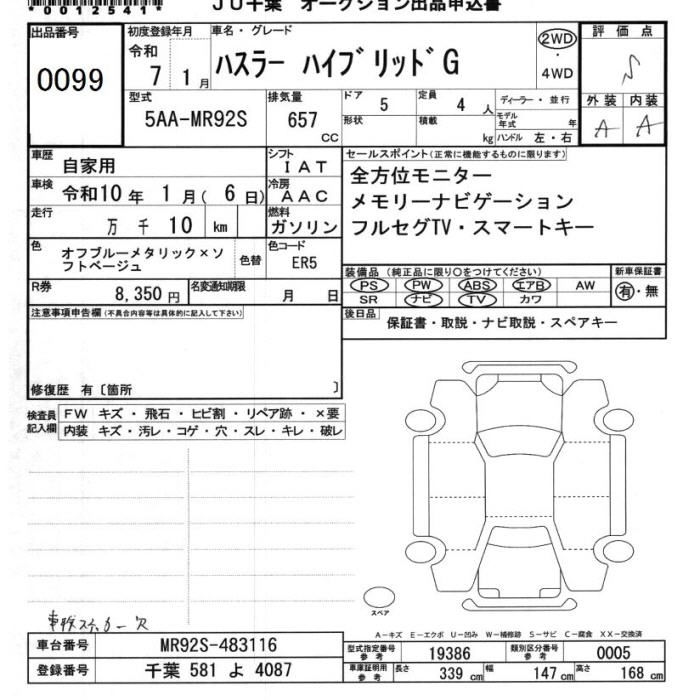 *0012541*
JU千葉 オークション出品申込書
出品番号
0099
初度登録年月
令和
7 1月
車名・グレード
ハスラー ハイブリッドG
2WD
・
4WD
評価点
S
外装 内装
A A
型式
5AA-MR92S
排気量
657
CC
ドア 5
定員 4 人
形状
積載 kg
ディーラー・並行
モデル年式 年
ハンドル 左・右
車歴 自家用
シフト IAT
車検 令和10年 1月(6日)
冷房 AAC
走行 万千10 km
燃料 ガソリン
セールスポイント(正常に機能するものに限ります)
全方位モニター
メモリーナビゲーション
フルセグTV・スマートキー
色 オフブルーメタリック×ソフトベージュ
色替
色コード
ER5
R券
8,350円
名変通知期限
月 日
装備品(純正品に限り○をつけてください)
PS PW ABS エアB AW
SR ナビ TV カワ
新車保証書
有・無
注意事項申告欄(不具合内容等は具体的に記入して下さい)
後日品
保証書・取説・ナビ取説・スペアキー
修復歴 有〔箇所 〕
検査員記入欄
FW キズ・飛石・ヒビ割・リペア跡・×要
内装 キズ・汚レ・コゲ・穴・スレ・キレ・破レ
スペア
車検ステッカー欠
A-キズ E-エクボ U-凹み W-補修跡 S-サビ C-腐食 XX-交換済
車台番号 MR92S-483116
登録番号 千葉 581 よ 4087
型式指定番号参考 19386
類別区分番号参考 0005
車庫証明用参考 長さ 339cm 幅 147cm 高さ 168cm